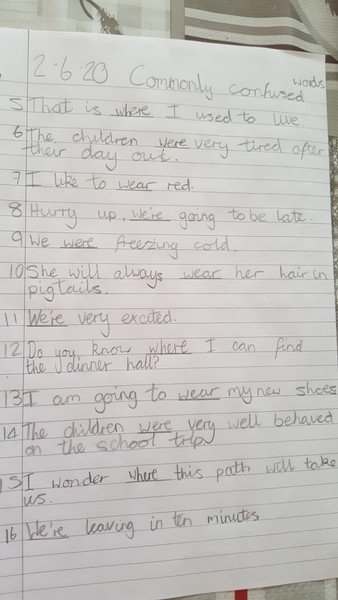 2.6.20 Commonly confused words
5 That is where I used to live.
6 The children were very tired after
their day out.
7 I like to wear red.
8 Hurry up, we're going to be late.
9 We were freezing cold.
10 She will always wear her hair in
pigtails.
11 We're very excited.
12 Do you know where I can find
the dinner hall?
13 I am going to wear my new shoes
14 The children were very well behaved
on the school trip
15 I wonder where this path will take
us.
16 We're leaving in ten minutes